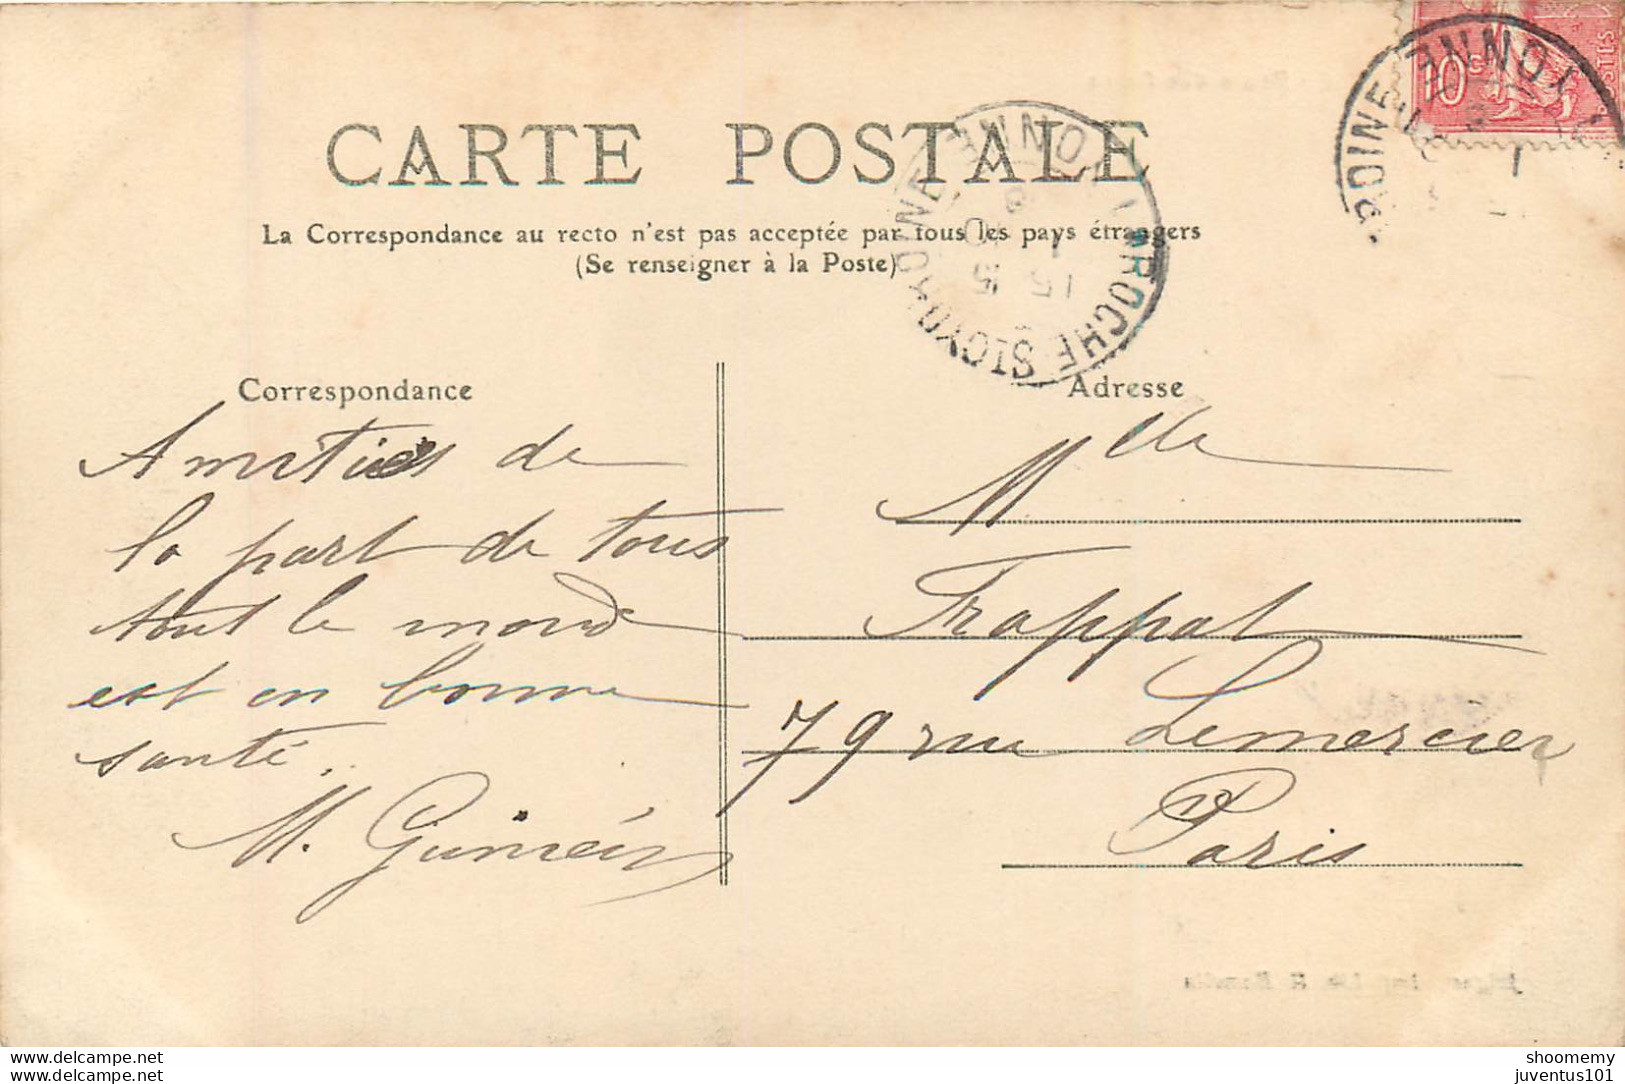 10c
YONNE
CARTE POSTALE
La Correspondance au recto n'est pas acceptée par tous les pays étrangers
(Se renseigner à la Poste)
LAROCHE ST CYDROINE YONNE
Correspondance
Amitiés de
la part de tous
tout le monde
est en bonne
santé.
Adresse
Mlle
Frappat
79 rue Lemercier
Paris
www.delcampe.net
www.delcampe.net
shoomemy
juventus101